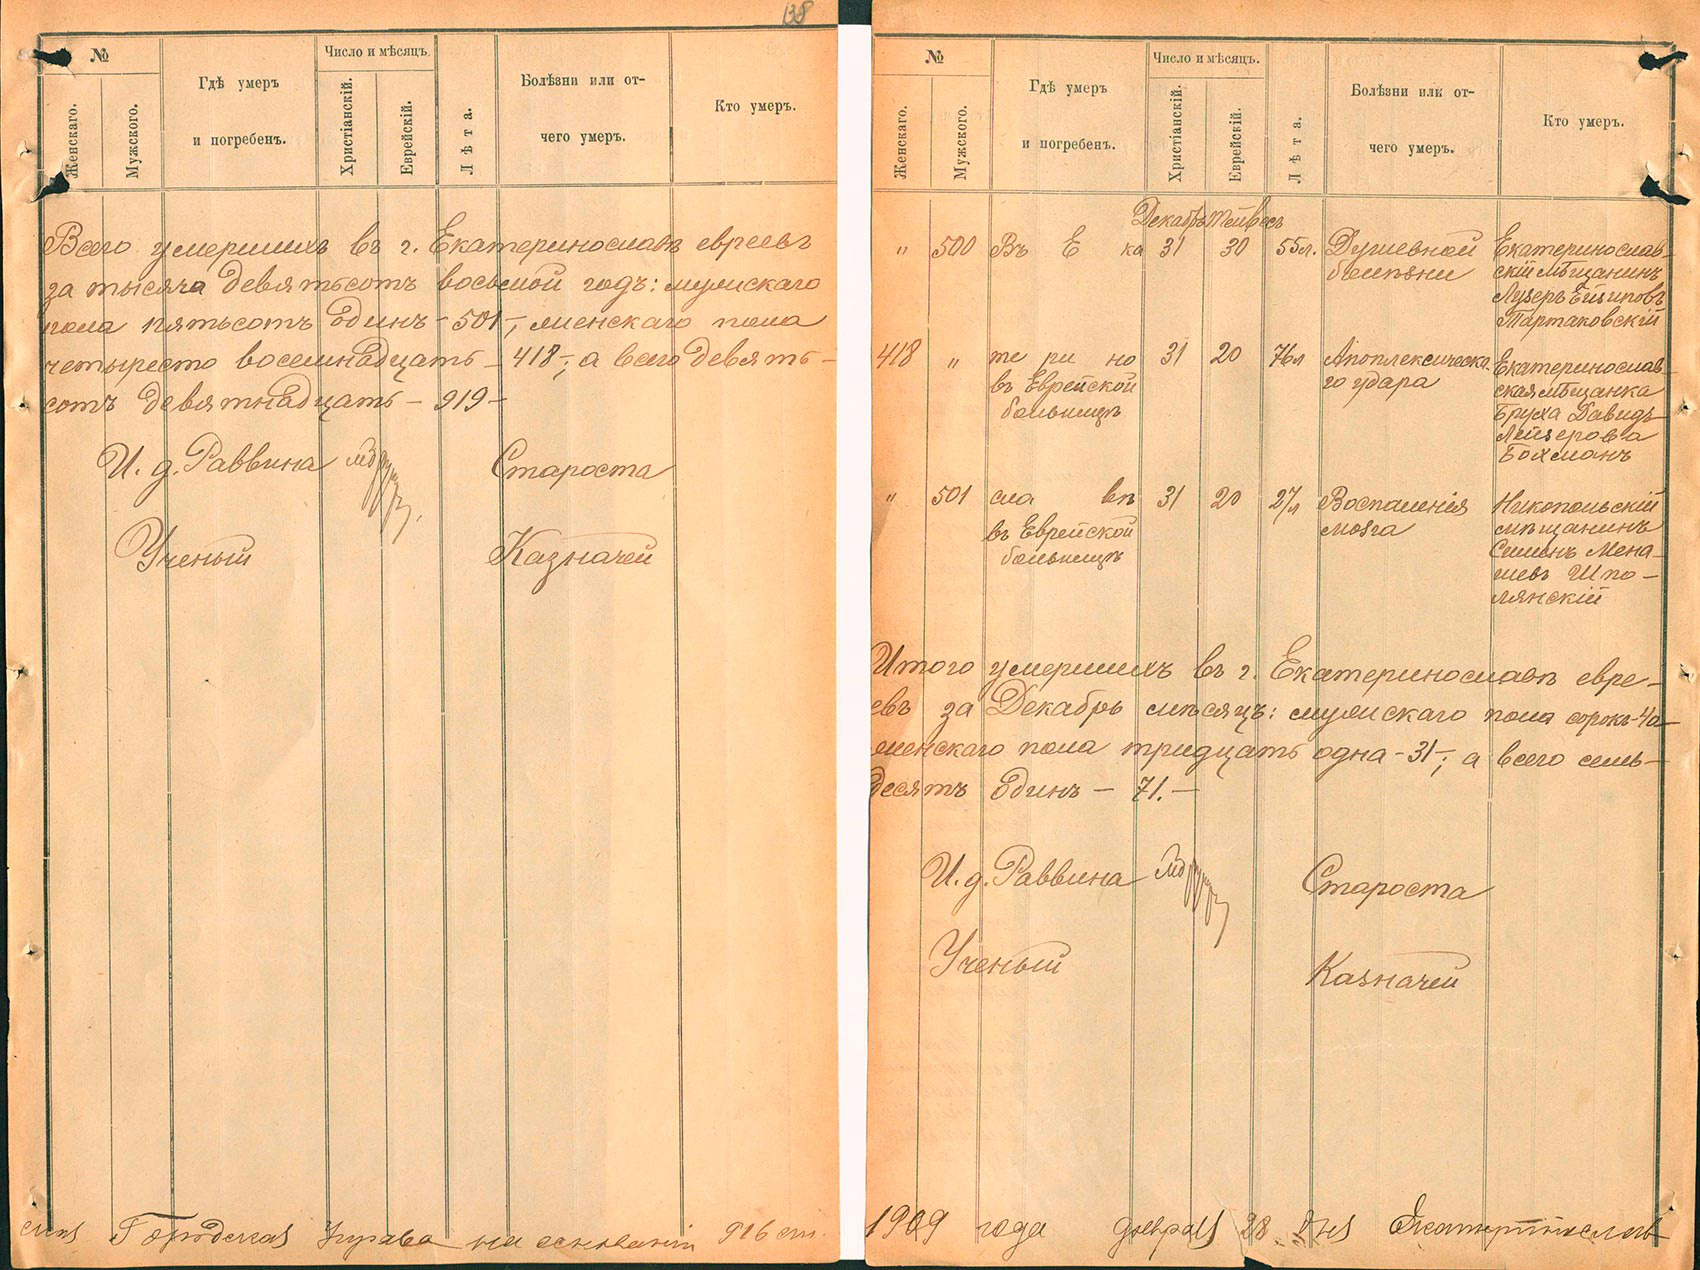 138
№
Женскаго.
Мужского.
Гдѣ умеръ
и погребенъ.
Число и мѣсяцъ.
Христіанскій.
Еврейскій.
Лѣта.
Болѣзни или от-
чего умеръ.
Кто умеръ.
Всего умершихъ въ г. Екатеринославѣ евреевъ
за тысяча девятьсотъ восьмой годъ: мужскаго
пола пятьсотъ одинъ - 501 -, женскаго пола
четыресто восемнадцать - 418 -; а всего девять-
сотъ девятнадцать - 919 -
И. д. Раввина
Староста
Ученый
Казначей
Городская Управа на основаніи 916 ст.
№
Женскаго.
Мужского.
Гдѣ умеръ
и погребенъ.
Число и мѣсяцъ.
Христіанскій.
Еврейскій.
Лѣта.
Болѣзни или от-
чего умеръ.
Кто умеръ.
Декабрь Тейвесъ
" 500 Въ Е ка 31 30 55л. Душевной Екатеринослав-
болѣзни скій мѣщанинъ
Лузеръ Ейзиповъ
Тартаковскій
418 " те ри но 31 20 76л Апоплексическо- Екатеринослав-
въ Еврейской го удара ская мѣщанка
больницѣ Бруха Давидъ-
Лейзерова
Бохманъ
" 501 сла вѣ 31 20 27л Воспаленія Никопольскій
въ Еврейской мозга мѣщанинъ
больницѣ Симонъ Мена-
шевъ Шпо-
лянскій
Итого умершихъ въ г. Екатеринославѣ евре-
евъ за Декабрь мѣсяцъ: мужскаго пола сорокъ - 40 -
женскаго пола тридцать одна - 31 -; а всего семь-
десятъ одинъ - 71. -
И. д. Раввина
Староста
Ученый
Казначей
1909 года февраля 28 дня Екатеринославъ